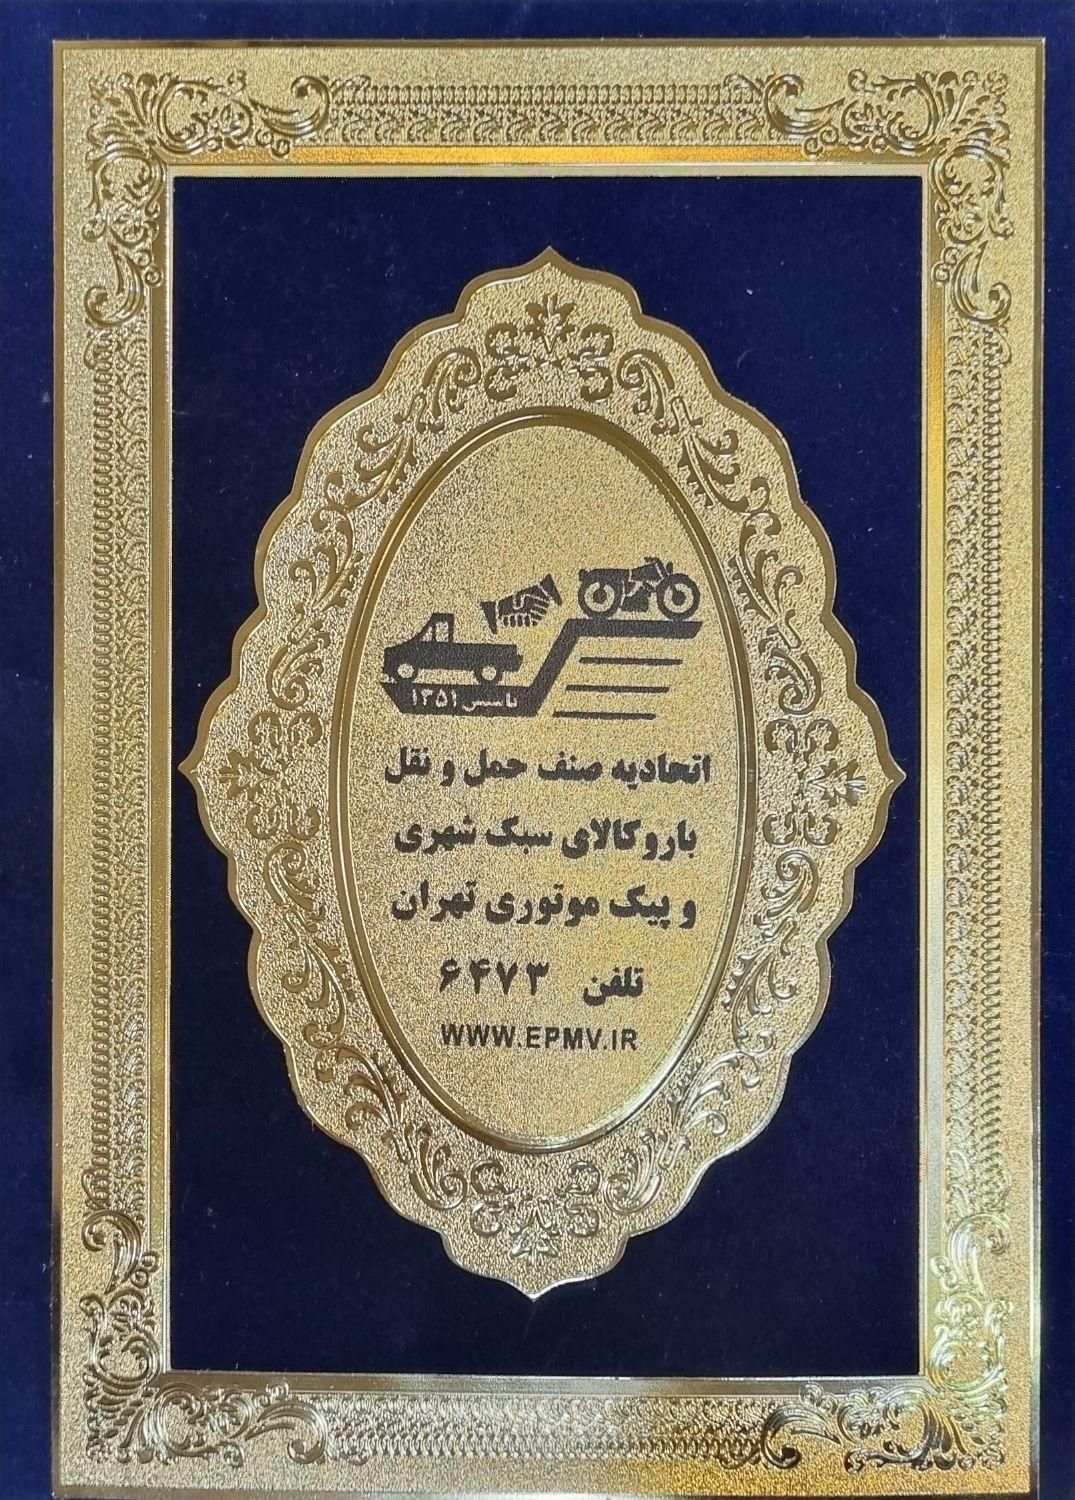 تاسیس ۱۳۵۱
اتحادیه صنف حمل و نقل
بار و کالای سبک شهری
و پیک موتوری تهران
تلفن ۶۴۷۳
WWW.EPMV.IR